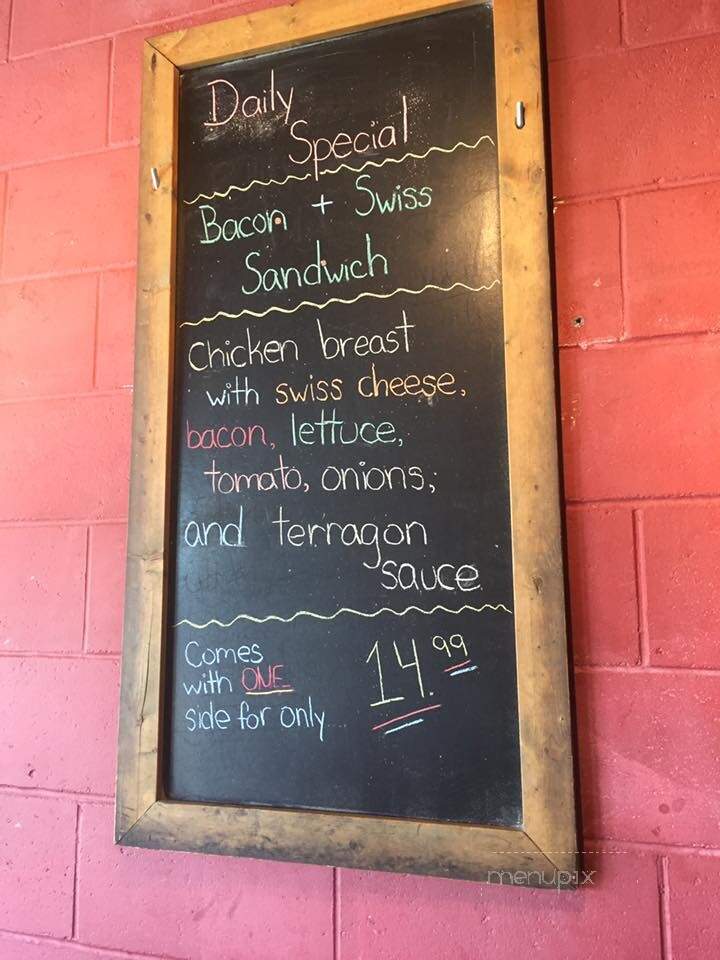 Daily
Special
Bacon + Swiss
Sandwich
Chicken breast
with swiss cheese,
bacon, lettuce,
tomato, onions,
and terragon
sauce
Comes
with ONE
side for only
14.99
menupix